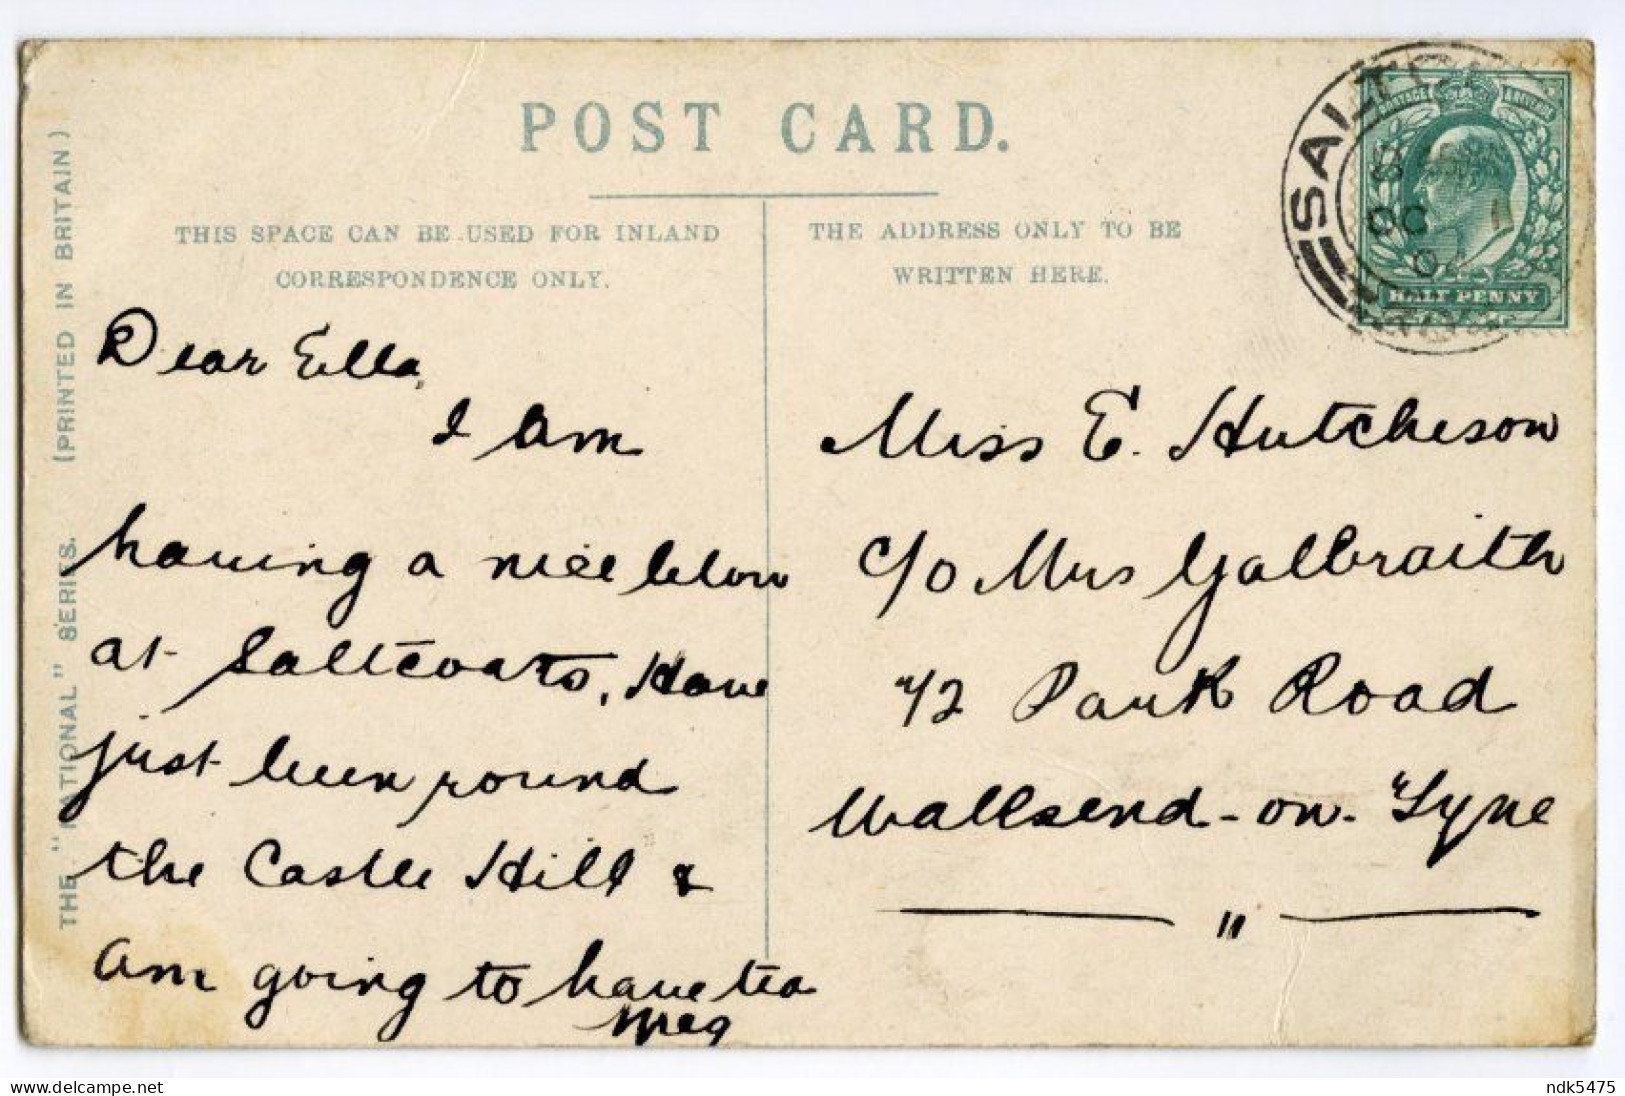 POST CARD.
THIS SPACE CAN BE USED FOR INLAND
CORRESPONDENCE ONLY.
THE ADDRESS ONLY TO BE
WRITTEN HERE.
THE "NATIONAL" SERIES. (PRINTED IN BRITAIN)
POSTAGE & REVENUE
HALF PENNY
SALTCO
8
OC 1
07
Dear Ella,
I am
having a nice blow
at Saltcoats. Have
just been round
the Castle Hill &
am going to have tea
Meg
Miss E. Hutcheson
c/o Mrs Galbraith
72 Park Road
Wallsend-on-Tyne
delcampe.net
ndk5475